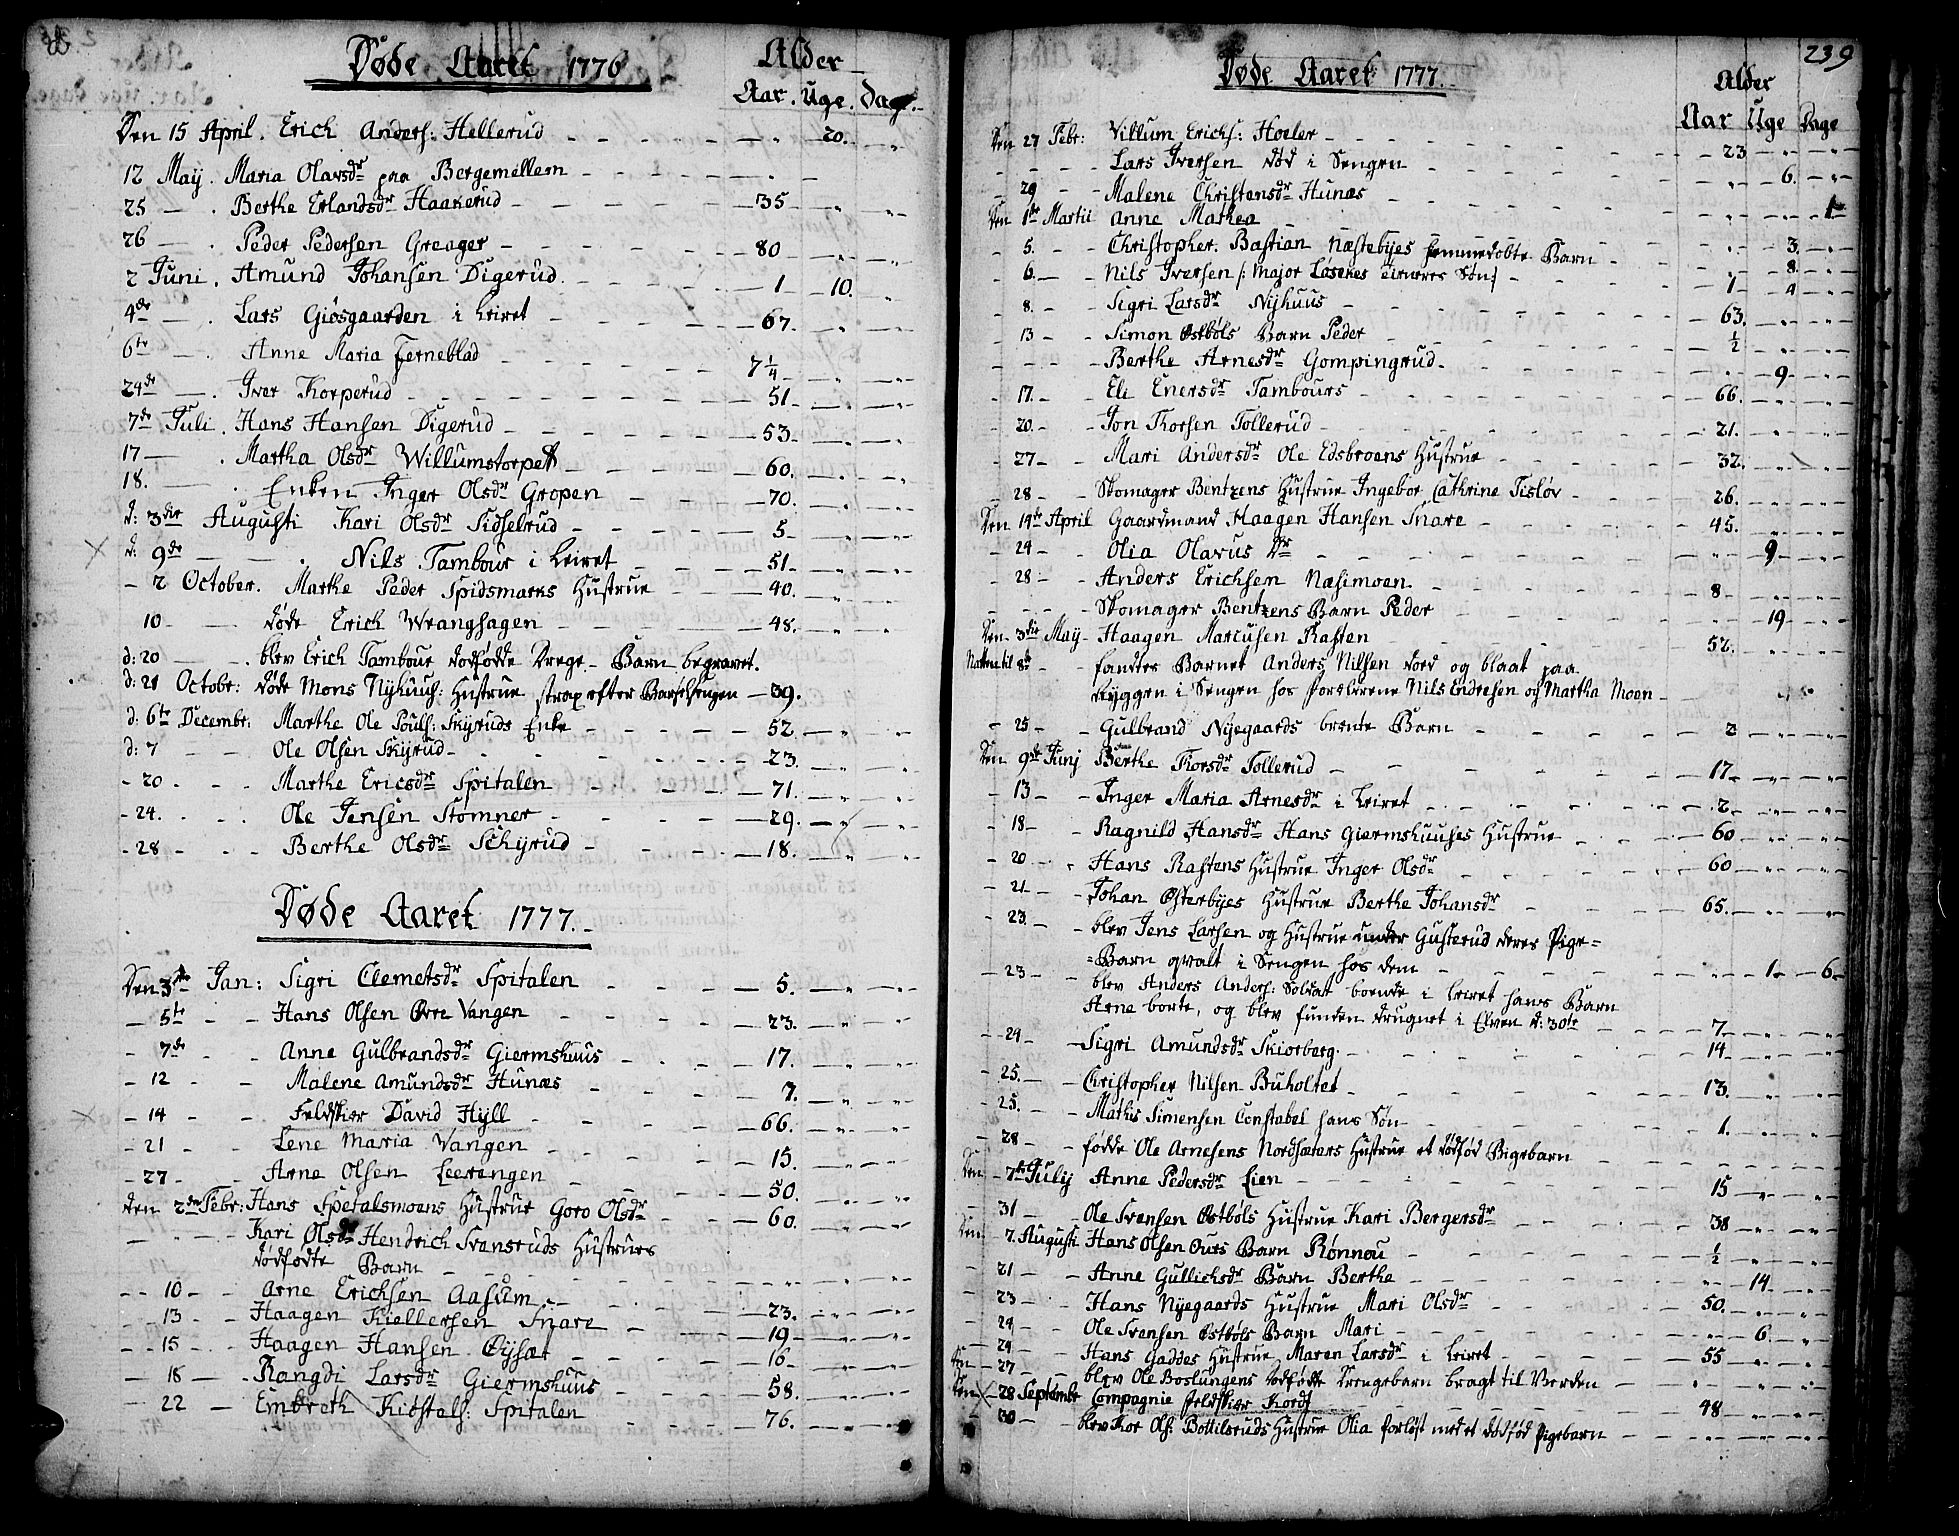 Døde Aaret 1776
Alder
Aar. Uge. dage.
Den 15 April. Erich Anders: Hellerud 20.
12 Maij. Maria Olavsdr paa Bergemellem
25 — . Berthe Erlandsdr Haakerud 35
26 — . Peder Pedersen Greager 80
2 Juni. Amund Johansen Digerud 1 10.
4de — . Lars Giøsgaarden i Leiret 67.
6te — . Anne Maria Ferneblad 7¼
24de — . Iver Korperud 51
7de Juli. Hans Hansen Digerud 53
17 — . Martha Olsdr Willumstorpet 60.
18. — . Enken Inger Olsdr Gropen 70.
d: 3die Augusti Kari Olsdr Sidselrud 5
d: 9de — . Nils Tambour i Leiret 51
2 October. Marthe Peder Spidsmarks Hustrue 40.
10 — døde Erich Wranghagen 48.
d: 20 — . blev Erich Tambour dødfødde Drege-Barn begravet.
d: 21 Octobr: døde Mons Nyhuus: Hustrue strax efter Barselsengen 39.
d: 6te Decembr: Marthe Ole Pouls: Skyruds Enke 52.
d: 7 Ole Olsen Skyrud 23.
20 Marthe Ericsdr Spitalen 71.
24. Ole Jensen Stømner 29.
28 Berthe Olsdr Schyrud 18.
Døde Aaret 1777.
Den 3die Jan: Sigri Clemetsdr Spitalen 5.
5te Hans Olsen Øvre Vangen 23.
7de Anne Gulbrandsdr Giermshuus 17.
12 Malene Amundsdr Hunæs 7.
14 Feldskier David Hyll 66.
21 Lene Maria Vangen 15.
27 Arne Olsen Leerengen 50.
den 2den Febr: Hans Spetalsmoens Hustrue Goro Olsdr 60.
Kari Olsdr Hendrich Svensruds Hustrues
dødfødte Barn
10 Arne Erichsen Aasum 23.
13 Haagen Kiellersen Snare 19
15 Haagen Hansen Øysæt 16
18 Rangdi Larsdr Giermshuus 58.
22 Embreth Kiøstels: Spitalen 76.
239
Døde Aaret 1777.
Alder
Aar Uge Dage
Den 27 Febr: Villum Erichs: Hoeler 23
Lars Iversen død i Sengen 6.
29 Malene Christensdr Hunæs
Den 1te Martii Anne Mathea 1
5. Christopher Bastian Næstebyes hemmedøbte Barn 3
6. Nils Iversen /: Major Løsekes tieneres Søn :/ 8
8. Sigri Larsdr Nyhuus 1 4
63.
13 Simon Østbøls Barn Peder ½
Berthe Arnesdr Gompingrud 9
17. Eli Enersdr Tambours 66.
20. Jon Thorsen Tollerud 21.
27 Mari Andersdr Ole Edsbroens Hustrue 32.
28 Skomager Bentzens Hustrue Ingebor Cathrine Tisløv 26.
Den 14te April Gaardmand Haagen Hansen Snare 45.
24 Olia Olavus Dr 9
28 Anders Erichsen Næsimoen 8
Skomager Bentzens Barn Peder 19
Den 3die May Haagen Marcusen Rasten 52.
Natten til 8de fandtes Barnet Anders Nilsen død og blaat paa
Ryggen i Sengen hos Forældrene Nils Endresen og Martha Moen
25 Gulbrand Nyegaards brente Barn 2
Den 9de Junj Berthe Thorsdr Tollerud 17
13 Inger Maria Arnesdr i Leiret 2
18 Ragnild Hansdr Hans Giermshuuses Hustrue 60
20 Hans Rastens Hustrue Inger Olsdr 60
21 Johan Østerbyes Hustrue Berthe Johansdr 65.
23. blev Jens Larsen og Hustrue under Gusterud deres Pige=
=Barn qvalt i Sengen hos dem 1. 6
23 blev Anders Anders: Soldat boende i Leiret hans Barn
Arne borte, og blev funden drugnet i Elven d: 30te 7
24 Sigri Amundsdr Skiorberg 14
25. Christopher Nilsen Buholtet 13.
25. Mathis Simensen Constabel hans Søn 1.
28 fødde Ole Arnesens Nordsæters Hustrue et dødfød Pigebarn
Den 7de Julij Anne Pedersdr Lien 15
31 Ole Svensen Østbøls Hustrue Kari Bergersdr 38
Den 7. Augusti Hans Olsen Ours Barn Rønnou ½
21 Anne Gullichsdr Barn Berthe 14
23 Hans Nyegaards Hustrue Mari Olsdr 50.
24 Ole Svensen Østbøls Barn Mari 6.
24 Hans Gaddes Hustrue Maren Larsdr i Leiret 55
Den 27 blev Ole Boslungens dødfødde Drengebarn bragt til Verden
Den 28 Septembr Compagnie Feldskier Kordt 48
30 blev Tor Ols: Bottilsruds Hustrue Olia forløst med et dødfød Pigebarn